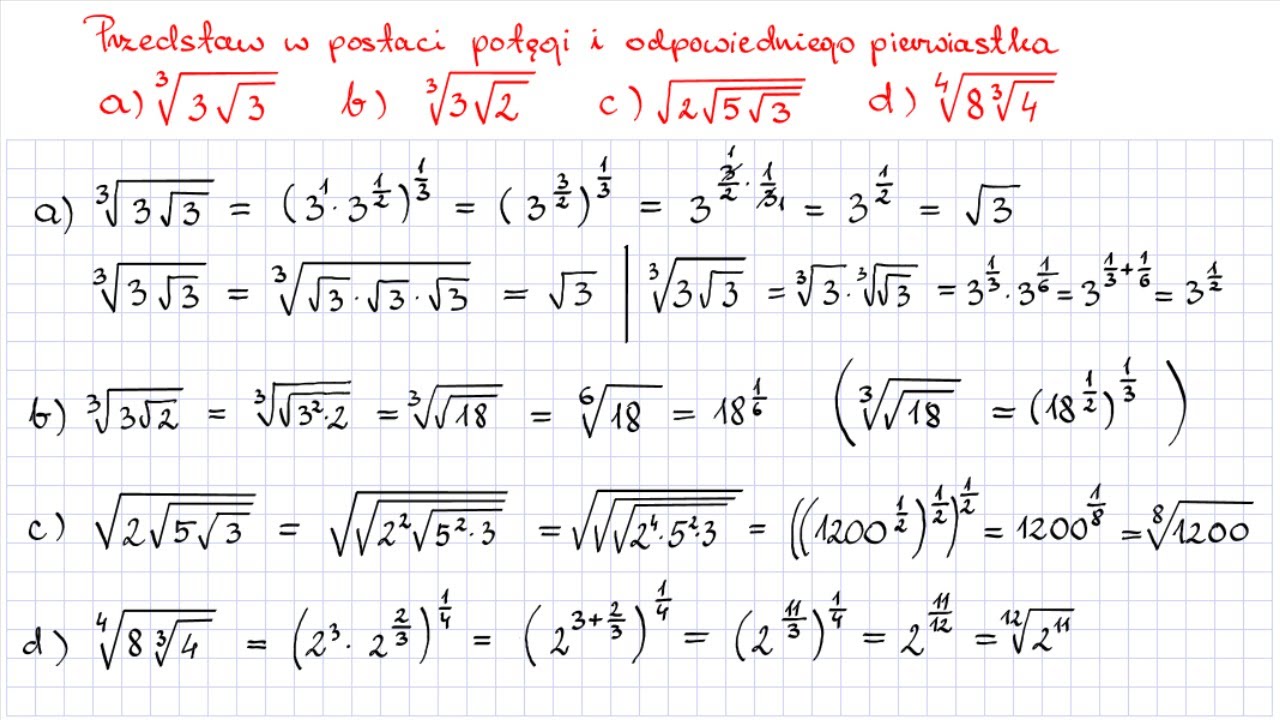 Przedstaw w postaci potęgi i odpowiedniego pierwiastka
a) ∛(3√3) b) ∛(3√2) c) √(2√(5√3)) d) ∜(8∛4)
a) ∛(3√3) = (3¹·3^(1/2))^(1/3) = (3^(3/2))^(1/3) = 3^(3/2·1/3) = 3^(1/2) = √3
∛(3√3) = ∛(√3·√3·√3) = √3 | ∛(3√3) = ∛3·∛(√3) = 3^(1/3)·3^(1/6) = 3^(1/3+1/6) = 3^(1/2)
b) ∛(3√2) = ∛(√(3²·2)) = ∛(√18) = ⁶√18 = 18^(1/6) (∛(√18) = (18^(1/2))^(1/3))
c) √(2√(5√3)) = √(√(2²√(5²·3))) = √(√(√(2⁴·5²·3))) = ((1200^(1/2))^(1/2))^(1/2) = 1200^(1/8) = ⁸√1200
d) ∜(8∛4) = (2³·2^(2/3))^(1/4) = (2^(3+2/3))^(1/4) = (2^(11/3))^(1/4) = 2^(11/12) = ¹²√(2¹¹)